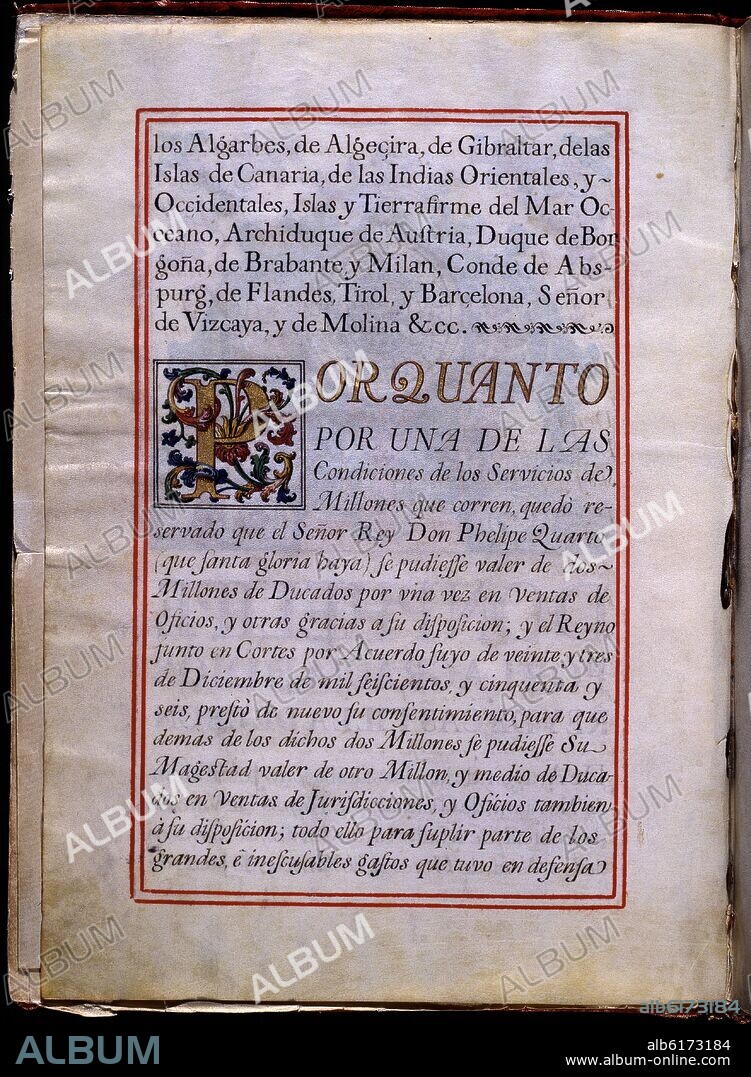 los Algarbes, de Algeçira, de Gibraltar, delas
Islas de Canaria, de las Indias Orientales, y~
Occidentales, Islas y Tierrafirme del Mar Oc-
ceano, Archiduque de Auſtria, Duque de Bor
goña, de Brabante y Milan, Conde de Abs-
purg, de Flandes, Tirol, y Barçelona, Señor
de Vizcaya, y de Molina &cc.
PORQUANTO
POR UNA DE LAS
Condiciones de los Servicios de
Millones que corren, quedò re-
servado que el Señor Rey Don Phelipe Quarto
(que ſanta gloria haya) ſe pudieſſe valer de dos~
Millones de Ducados por vna vez en Ventas de
Oficios, y otras gracias a ſu diſpoſicion; y el Reyno
junto en Cortes por Acuerdo ſuyo de veinte y tres
de Diciembre de mil ſeiſcientos, y cinquenta y
seis, preſtò de nuevo ſu conſentimiento, para que
demas de los dichos dos Millones ſe pudieſſe Su
Mageſtad valer de otro Millon, y medio de Duca-
dos en Ventas de Juriſdicciones, y Oficios tambien
à ſu diſpoſicion; todo ello para ſuplir parte de los
grandes, è ineſcuſables gaſtos que tuvo en defenſa
alb6173184
ALBUM
alb6173184
www.album-online.com